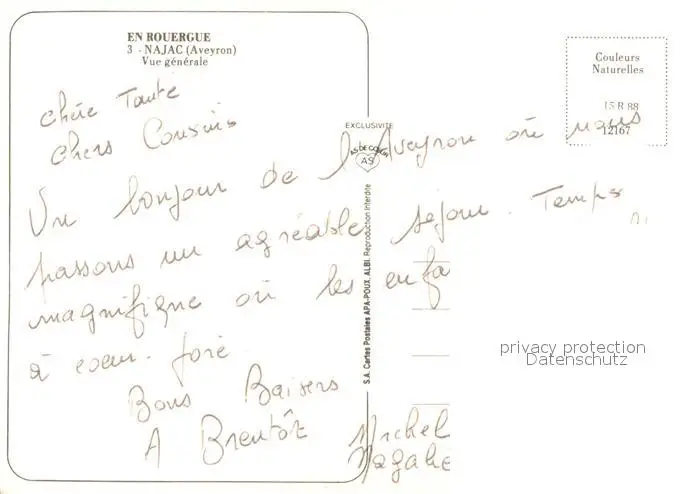 EN ROUERGUE
3 - NAJAC (Aveyron)
Vue générale
Couleurs
Naturelles
15 R 88
12167
EXCLUSIVITE
AS DE COEUR
AS
S.A. Cartes Postales APA-POUX, ALBI. Reproduction interdite
chère Tante
chers Cousins
Un bonjour de l'Aveyron où nous
passons un agréable séjour. Temps
magnifique où les enfa
à coeur. joie
Bons Baisers
A Brentôt
Michel
privacy protection
Datenschutz